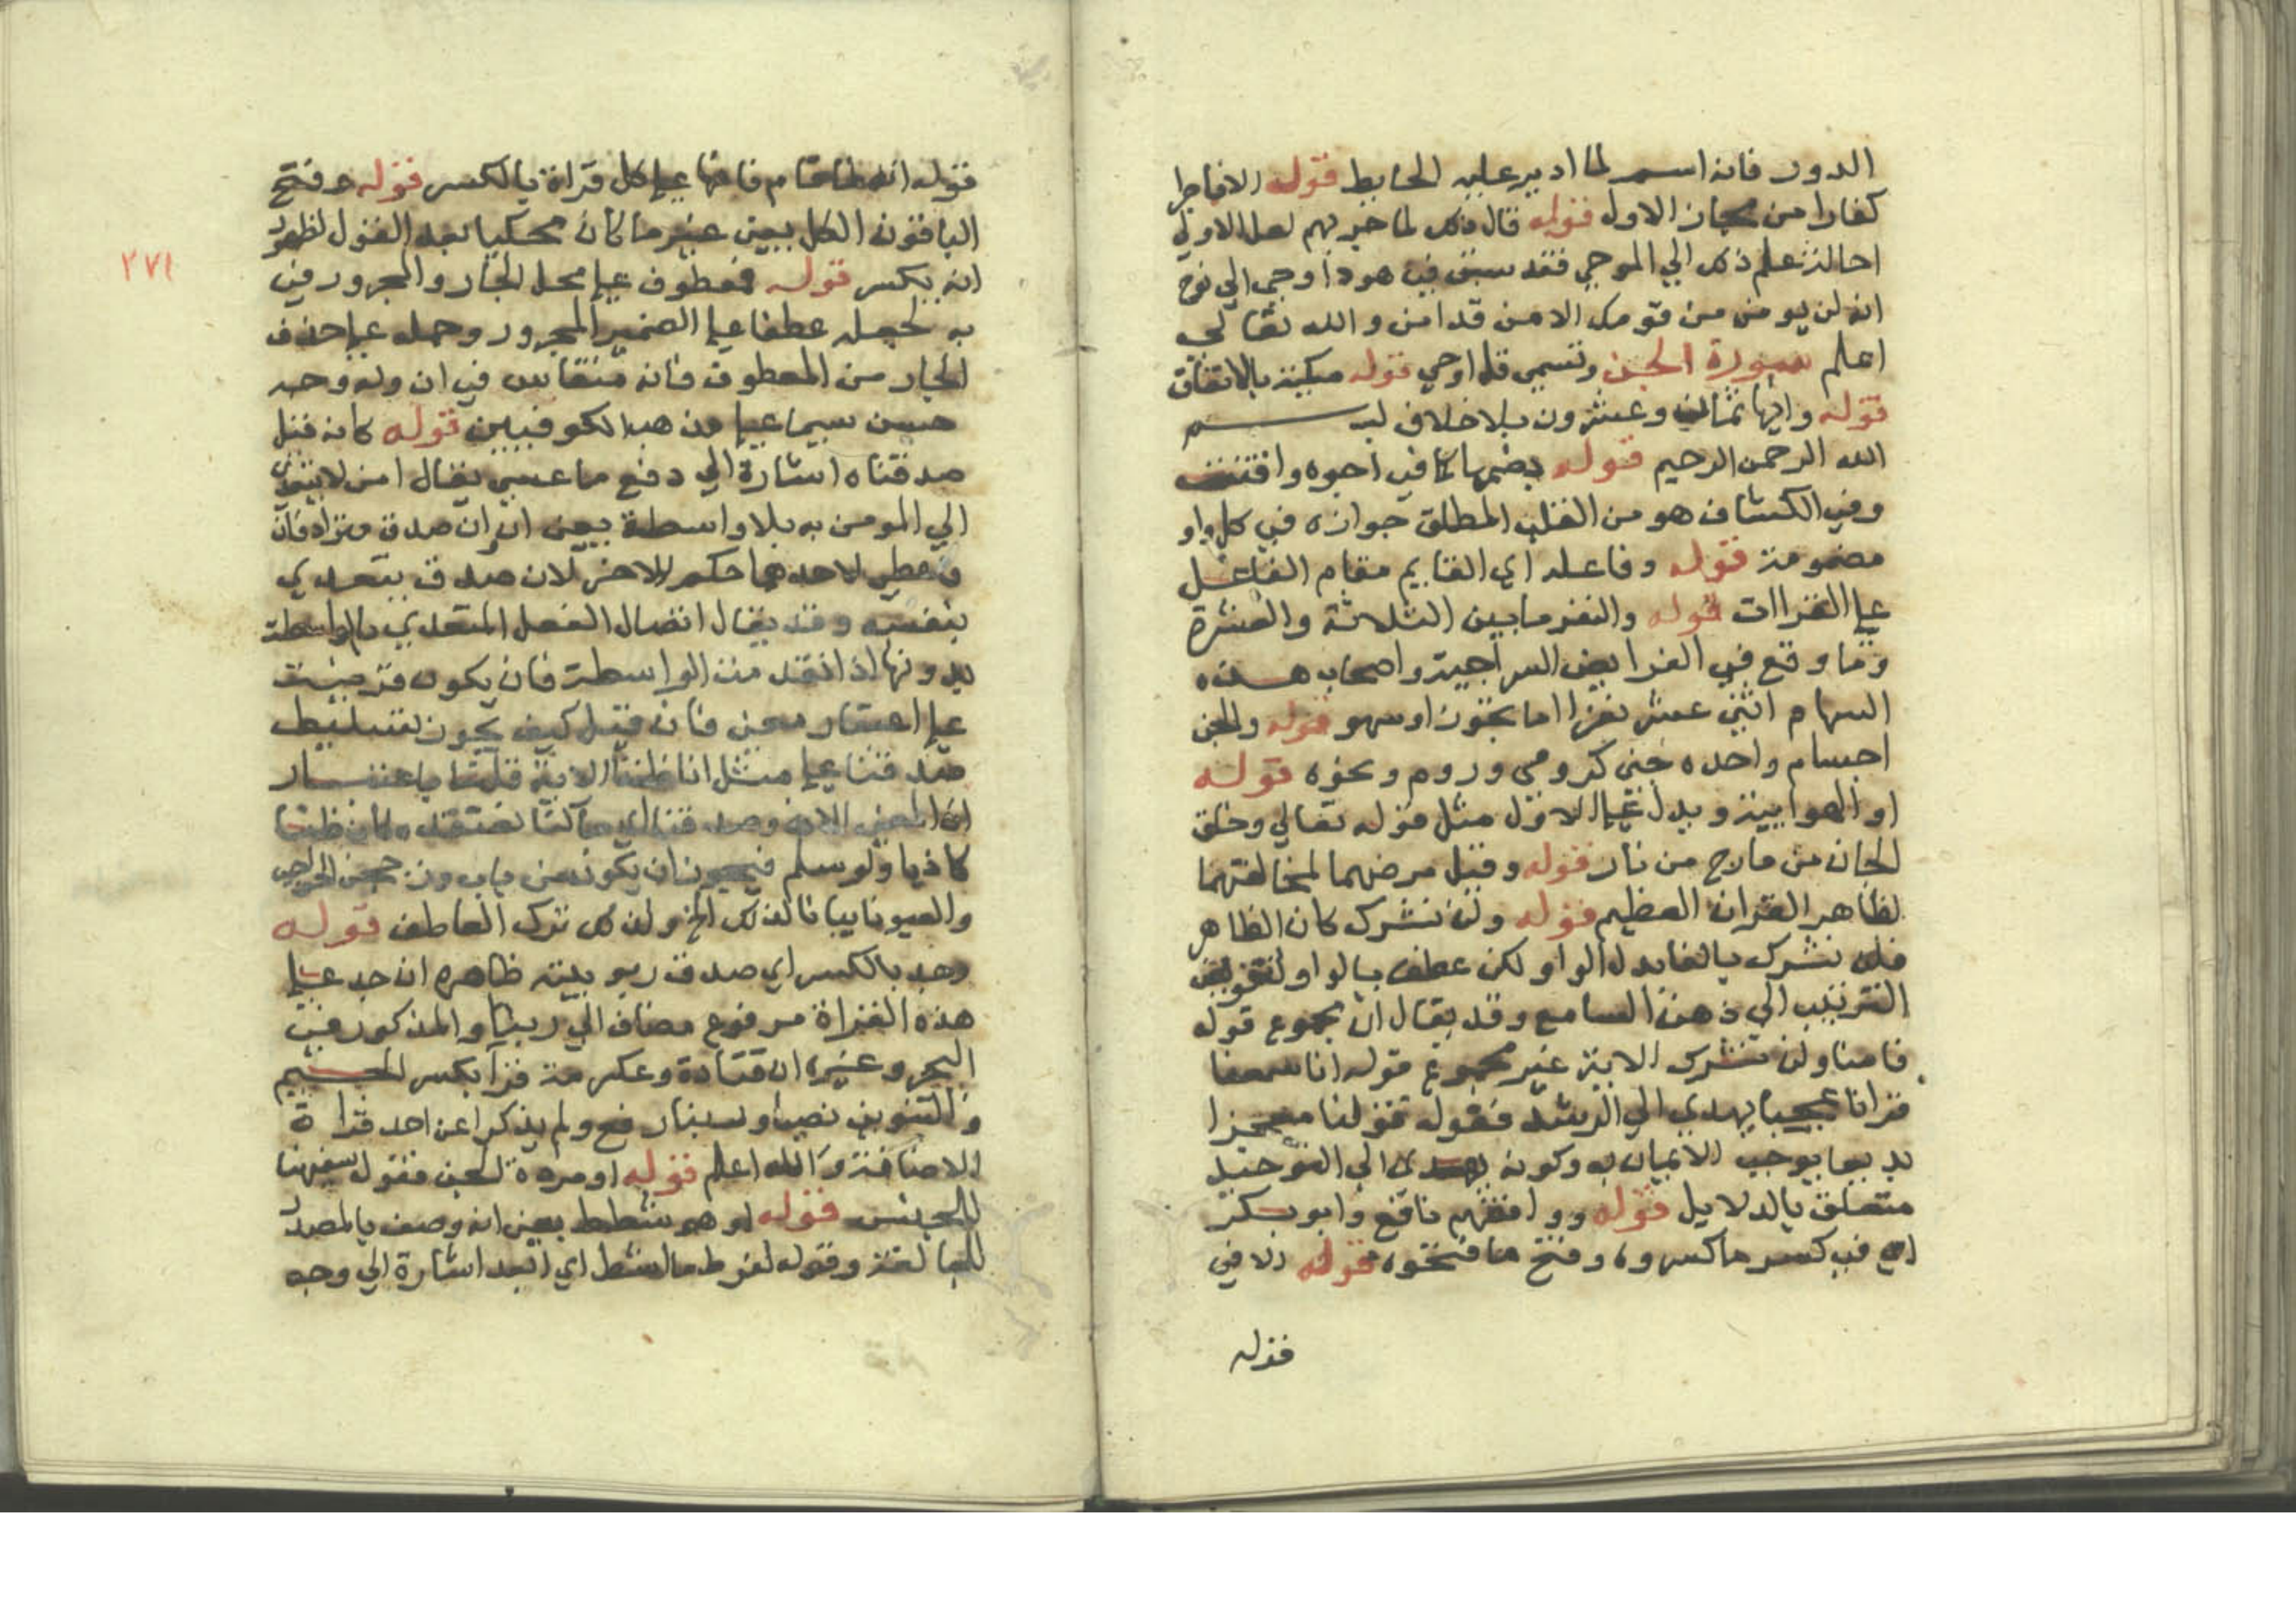 الدور فانه اسم لما ادير عليه الحايط قوله الا فاجرا
كفارا من مجاز الاول قوله قال ذلك لما خبر بهم لعل الاولي
احالة علم ذلك الي الوحي فقد سبق في هود اوحي الي نوح
انه لن يومن من قومك الا من قد امن والله تعالي
اعلم سورة الجن وتسمي قل اوحي قوله مكية بالاتفاق
قوله وايها ثمان وعشرون بلا خلاف بسم
الله الرحمن الرحيم قوله بضمها كما في اجوه واقتت
وفي الكشاف هو من القلب المطلق جوازه في كل واو
مضمومة قوله وفاعله اي القايم مقام الفاعل
علي القراات قوله والنفر ما بين الثلاثة والعشرة
وما وقع في الفرايض السراجية واصحاب هذه
السهام اثني عشر نفرا اما تجوز او سهو قوله والجن
اجسام واحده جني كرومي وروم ونحوه قوله
او الهوايية ويدل علي الاول مثل قوله تعالي وخلق
الجان من مارج من نار قوله وقيل مرضهما لمخالفتهما
لظاهر القران العظيم قوله ولن نشرك كان الظاهر
فلن نشرك بالفا بدل الواو لكن عطف بالواو لتفويض
الترتيب الي ذهن السامع وقد يقال ان مجموع قوله
فامنا ولن نشرك الاية غير مجموع قوله انا سمعنا
قرانا عجبا يهدي الي الرشد فقوله قولنا معجزا
بديعا يوجب الايمان به وكونه يهدي الي التوحيد
متعلق بالدلايل قوله ووافقهم نافع وابو بكر
اي في كسر ما كسروه وفتح ما فتحوه قوله الا في
قوله
٢٧١
قوله انه لما قام فانها علي كل قراة بالكسر قوله وفتح
الباقون الكل يعني غير ما كان محكيا بعد القول لظهور
انه يكسر قوله فمعطوف علي محل الجار والمجرور في
به لجعله عطفا علي الضمير المجرور وحمله علي حذف
الجار من المعطوف فانه منقاس في ان وله وجه
حسن سيما علي مذهب الكوفيين قوله كانه قيل
صدقناه اشارة الي دفع ما عسي يقال امن لا يتعدي
الي المومن به بلا واسطة يعني ان ان صدق مراد فان
وتعطي لاحدهما حكم الاخر لان صدق يتعدي
بنفسه وقد يقال اتصال الفعل المتعدي بالواسطة
بدونها اذا فقد من الواسطة فان يكون قرينة
علي اعتبار معني فان قيل كيف يجوز تسليط
صدقنا علي مثل انا ظننا الاية قلنا باعتبار
ان المعني الان وصدقنا كنا نعتقده
كاذبا ولو سلم فيجوز ان يكون من باب وزججن الحواجب
والعيونا ترك العاطف قوله
وجد بالكسر اي صدق ربوبيته ظاهره ان جد علي
هذه القراة مرفوع مضاف الي ربنا والمذكور في
البحر وغيره ان قتادة وعكرمة قرآ بكسر الجيم
والتنوين نصبا وربنا رفع ولم يذكرا عن احد قراة
الاضافة والله اعلم قوله او مردة الجن فقول سفيهنا
للجنس قوله او هو شطط يعني انه وصف بالمصدر
للمبالغة وقوله لفرط ما اشط اي ابعد اشارة الي وجه